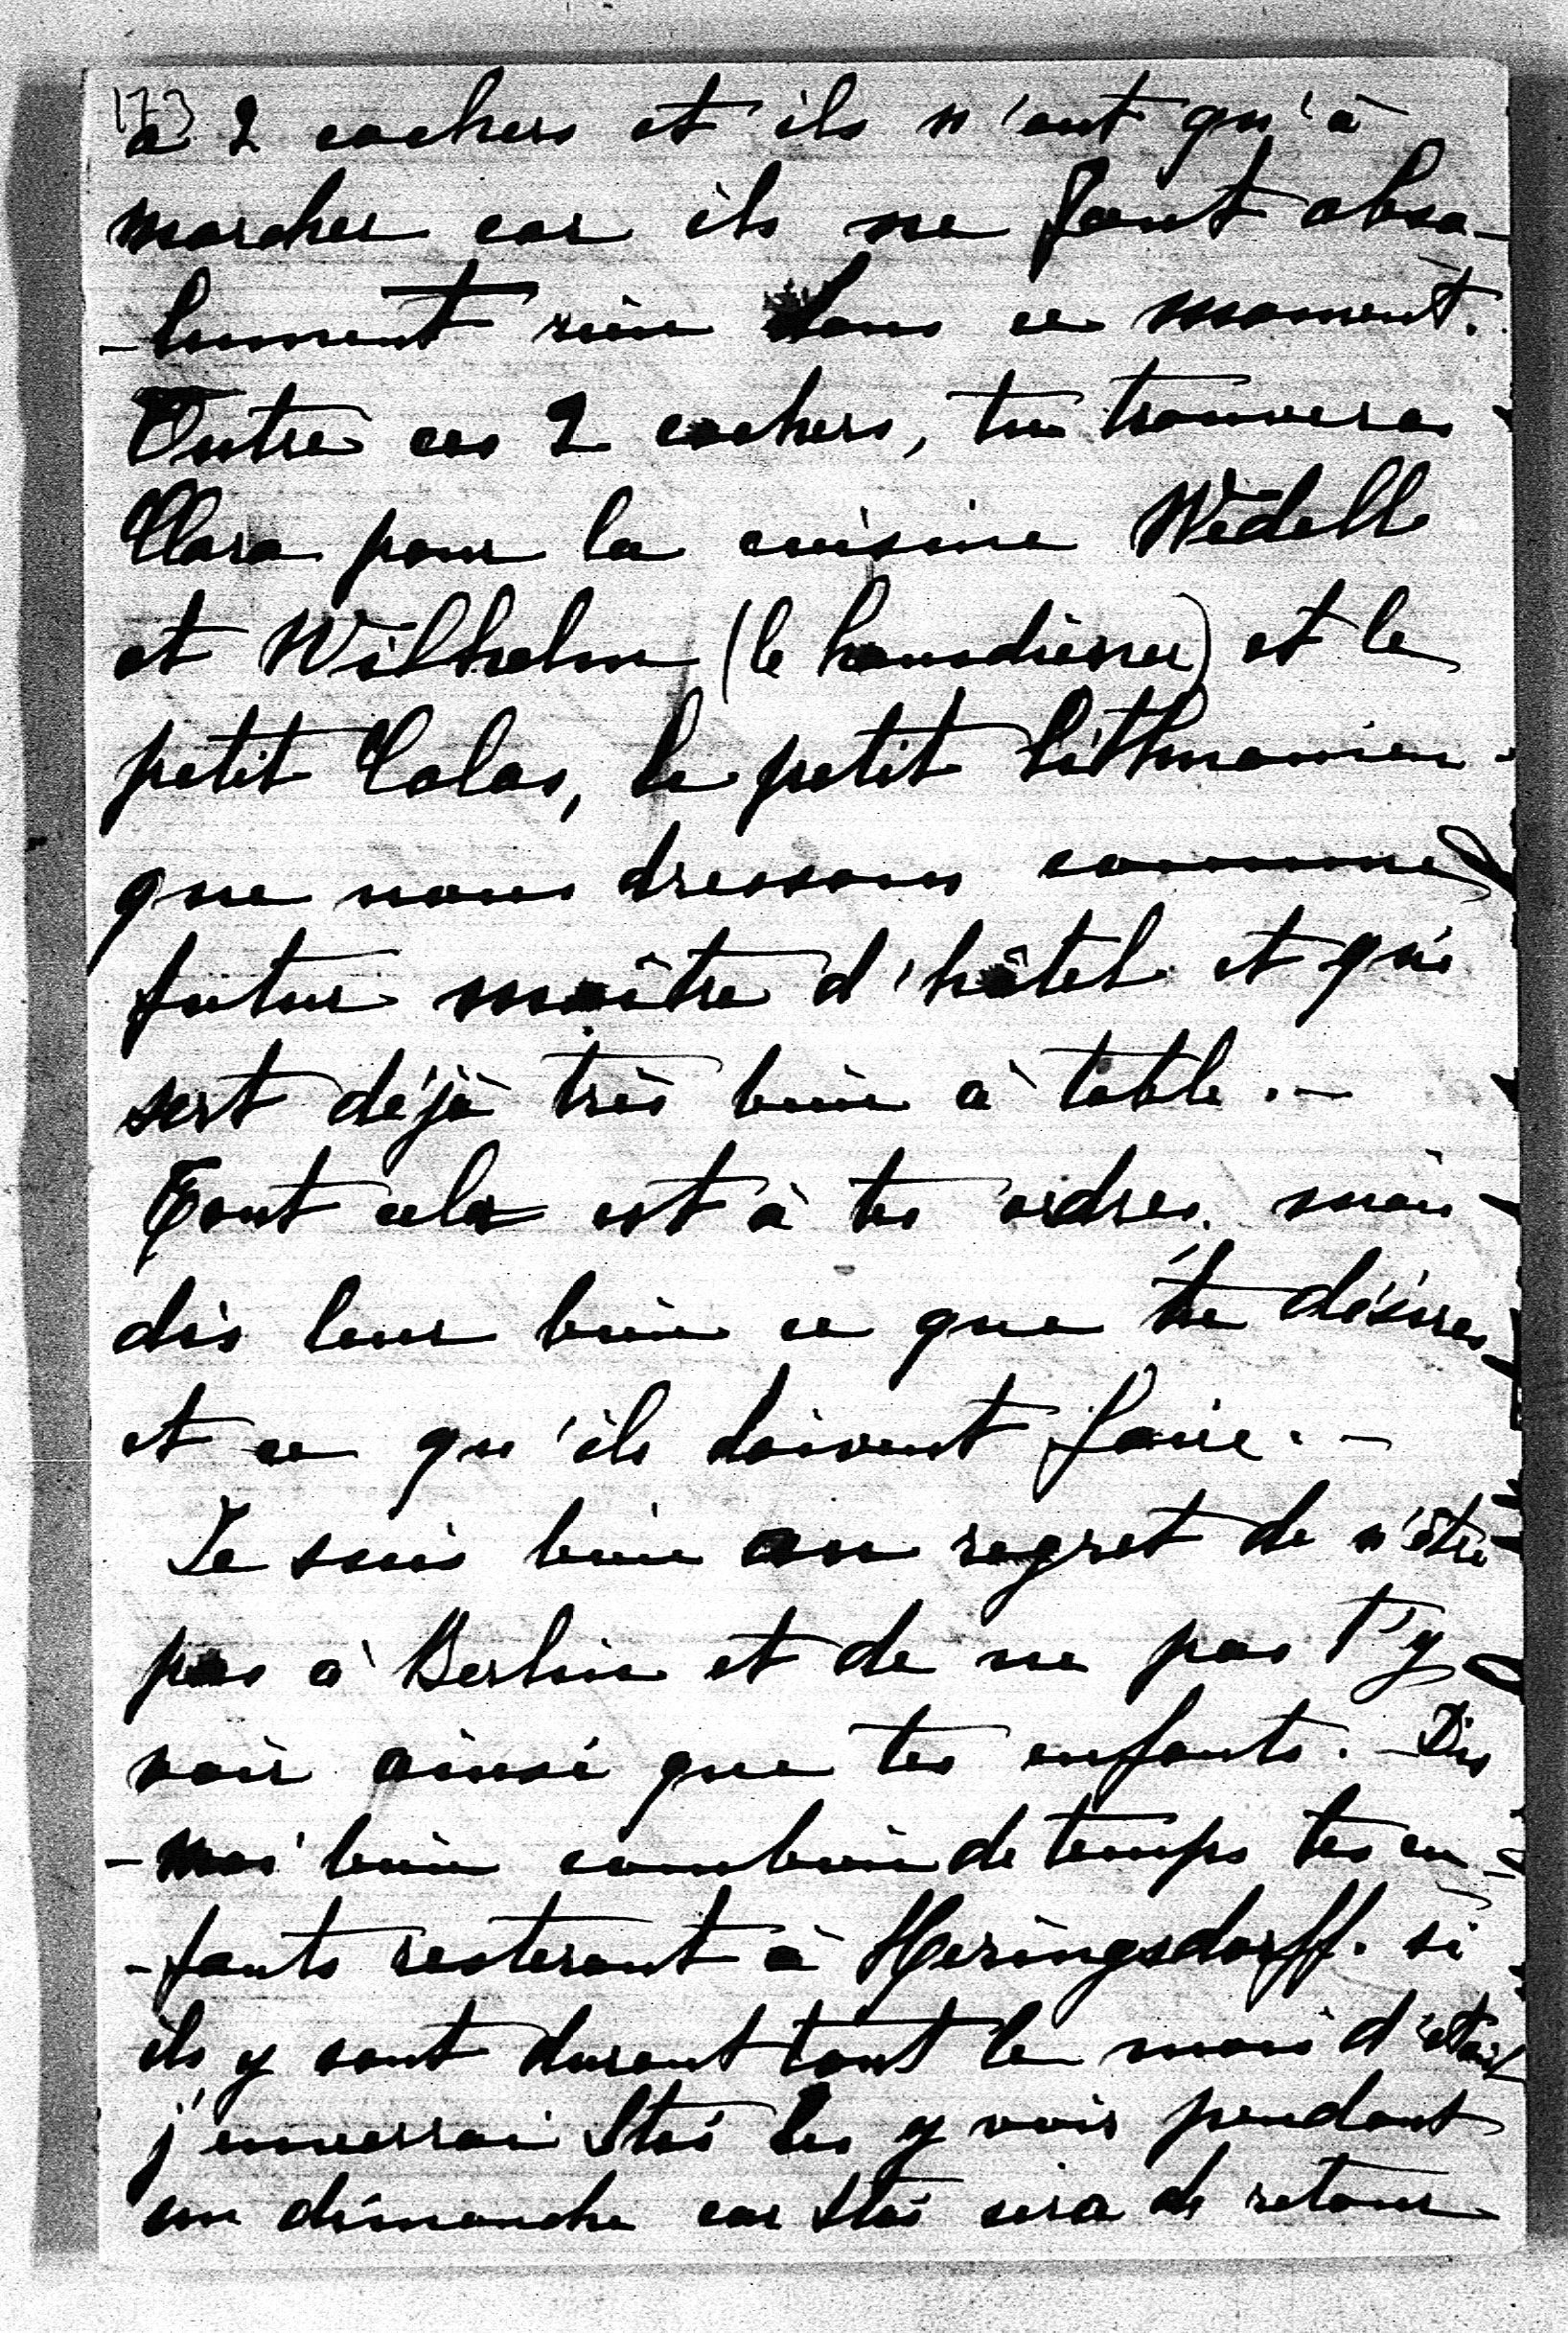 173
a 2 cochers et ils n'ont qu'à
marcher car ils ne font abso-
-lument rien dans ce moment.
Outre ces 2 cochers, tu trouveras
Clara pour la cuisine Wedell
et Wilhelm (le hausdiener) et le
petit Colas, le petit lithuanien
que nous dressons comme
futur maître d'hôtel et qui
sert déjà très bien à table. -
Tout cela est à tes ordres, mais
dis leur bien ce que tu désires
et ce qu'ils doivent faire. -
Je suis bien au regret de n'être
pas à Berlin et de ne pas t'y
voir ainsi que tes enfants. - Dis
-moi bien combien de temps tes en-
-fants resteront à Heringsdorff. si
ils y sont durant tout le mois d'août
j'enverrai Stas les y voir pendant
un dimanche car Stas sera de retour